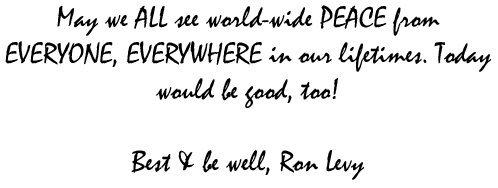 May we ALL see world-wide PEACE from
EVERYONE, EVERYWHERE in our lifetimes. Today
would be good, too!
Best & be well, Ron Levy